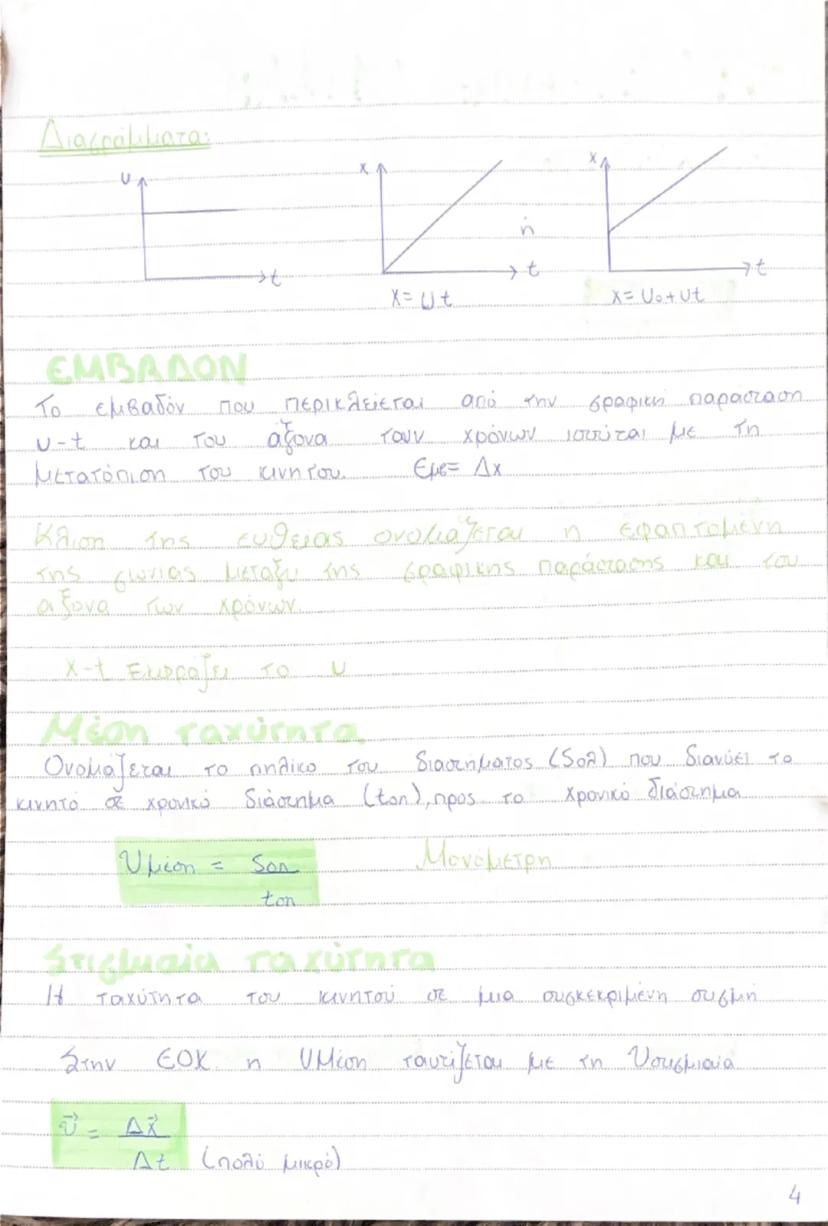 Διαγράμματα:
υ
t
x
t
ή
x
t
x = υt
x = υο + υt
ΕΜΒΑΔΟΝ
Το εμβαδόν που περικλείεται από την γραφική παράσταση
υ-t και του άξονα τουν χρόνων ισούται με τη
μετατόπιση του κινητου. Εμε = Δx
Κλιση της ευθειας ονομάζεται η εφαπτομένη
της γωνιας μεταξυ της γραφικης παράστασης και του
αξονα των χρόνων.
x-t Εκφράζει το υ
Μέση ταχύτητα
Ονομάζεται το πηλίκο του διαστήματος (Sολ) που διανύει το
κινητό σε χρονικό διάστημα (tολ), προς το χρονικό διάστημα
υμέση = Sολ
tολ
Μονόμετρη
Στιγμιαία ταχύτητα
Η ταχύτητα του κινητού σε μια συγκεκριμένη στιγμή
Στην ΕΟΚ η υμέση ταυτίζεται με τη υστιγμιαία
υ⃗ = Δx⃗
Δt (πολύ μικρό)
4